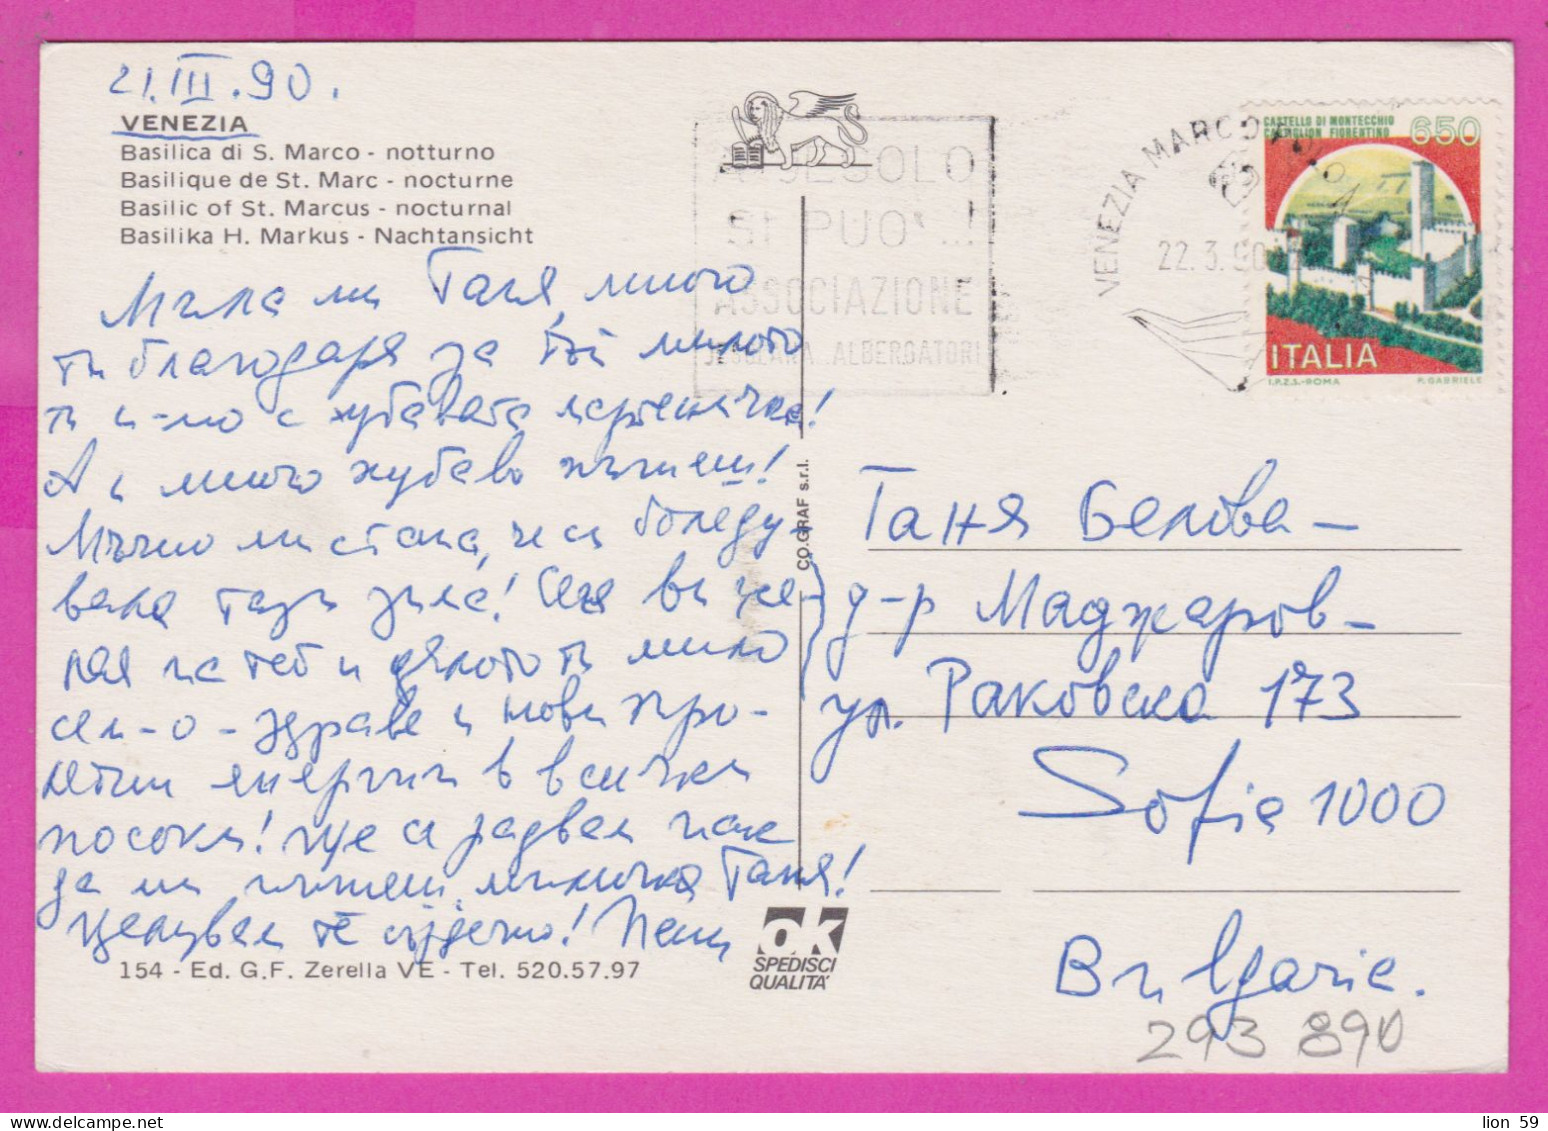 21.III.90.
VENEZIA
Basilica di S. Marco - notturno
Basilique de St. Marc - nocturne
Basilic of St. Marcus - nocturnal
Basilika H. Markus - Nachtansicht
Мила ми Таня, много
ти благодаря за той милото
ти и-мо с хубавата мартеничка!
А и много хубаво пишеш!
Мъчно ми стана, че си боледу-
вала тази зима! Сега ви же-
лая на теб и дякото ти мило
сем-о - здраве и нови про-
летни енергии в всички
посоки! Ще се радвам пак
да ми пишеш, миличка Таня!
Целувам те сърдечно! Пепи
154 - Ed. G.F. Zerella VE - Tel. 520.57.97
ok
SPEDISCI
QUALITA'
CO.GRAF s.r.l.
A JESOLO
SI PUO'...!
ASSOCIAZIONE
JESOLANA ALBERGATORI
VENEZIA MARCO POLO
22.3.90
CASTELLO DI MONTECCHIO
CASTIGLION FIORENTINO
650
ITALIA
I.P.Z.S.-ROMA
P. GABRIELE
Таня Белова -
д-р Маджаров -
ул. Раковска 173
Sofia 1000
Bulgaria.
293 890
lion 59